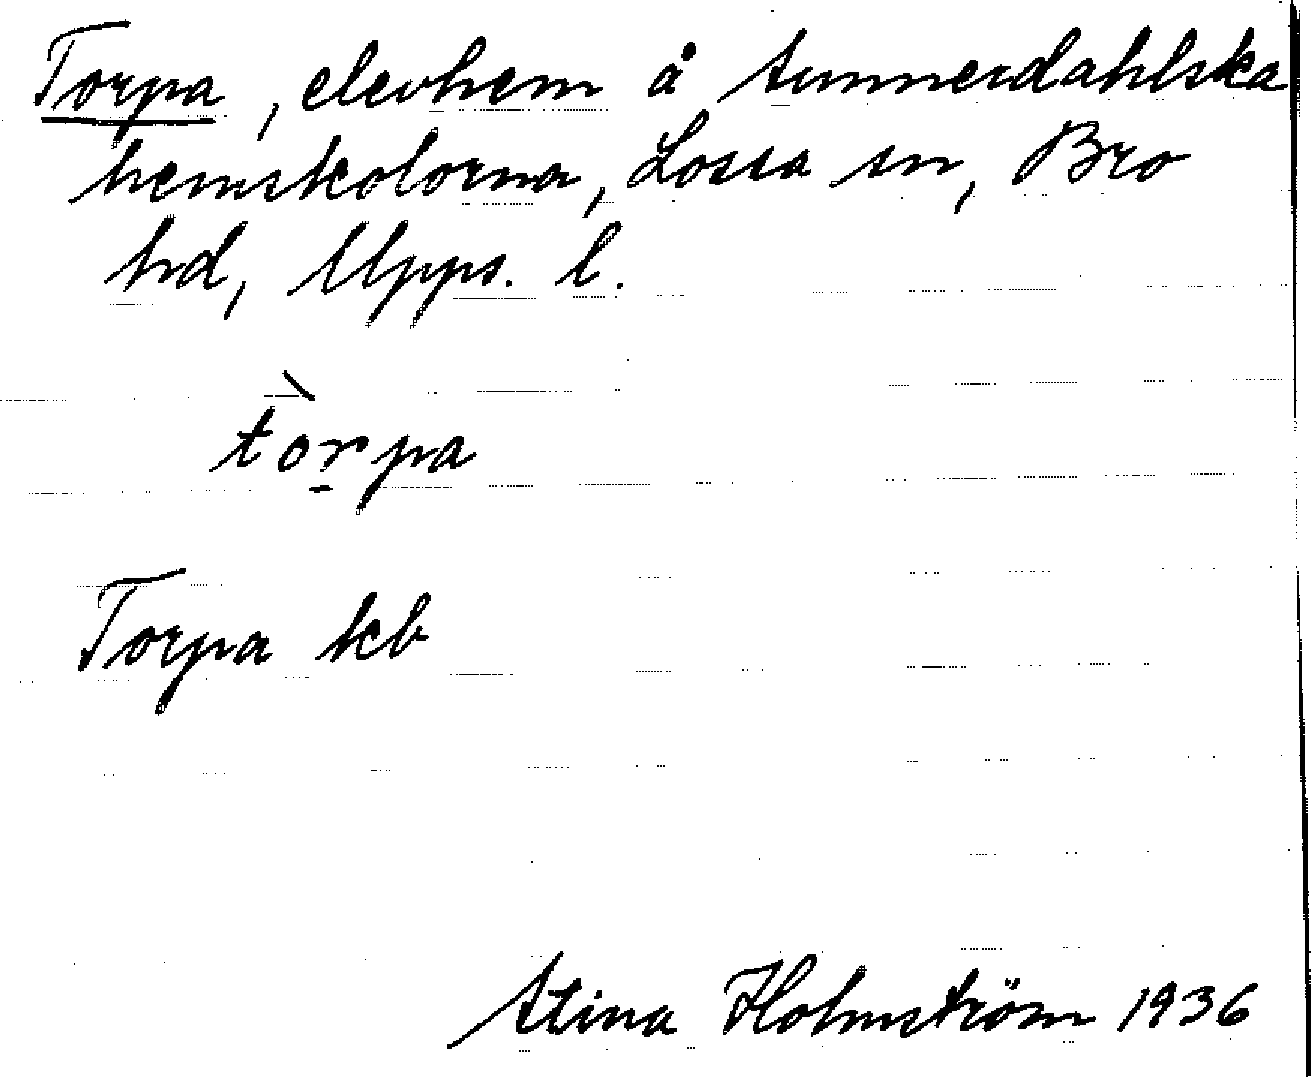 Torpa, elevhem å Sunnerdahlska
hemskolorna, Lossa sn, Bro
hd, Upps. l.
tòrpa
Torpa kb
Stina Holmström 1936